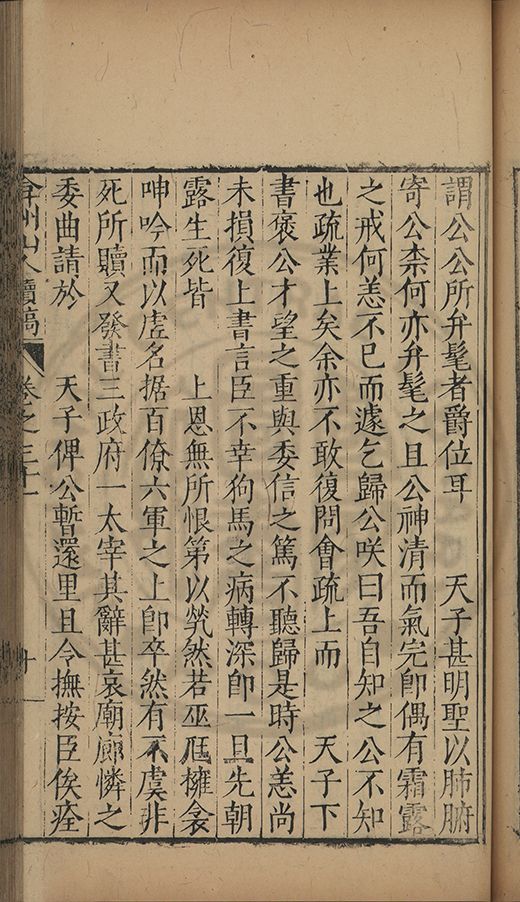 謂公公所弁髦者爵位耳　天子甚明聖以肺腑
寄公柰何亦弁髦之且公神清而氣完卽偶有霜露
之戒何恙不已而遽乞歸公咲曰吾自知之公不知
也疏業上矣余亦不敢復問會疏上而　天子下
書褒公才望之重與委信之篤不聽歸是時公恙尚
未損復上書言臣不幸狗馬之病轉深卽一旦先朝
露生死皆　上恩無所恨第以煢然若巫尫擁衾
呻吟而以虗名据百僚六軍之上卽卒然有不虞非
死所贖又發書三政府一太宰其辭甚哀廟廊憐之
委曲請於　天子俾公暫還里且令撫按臣俟痊
弇州山人續稿　卷之三十一